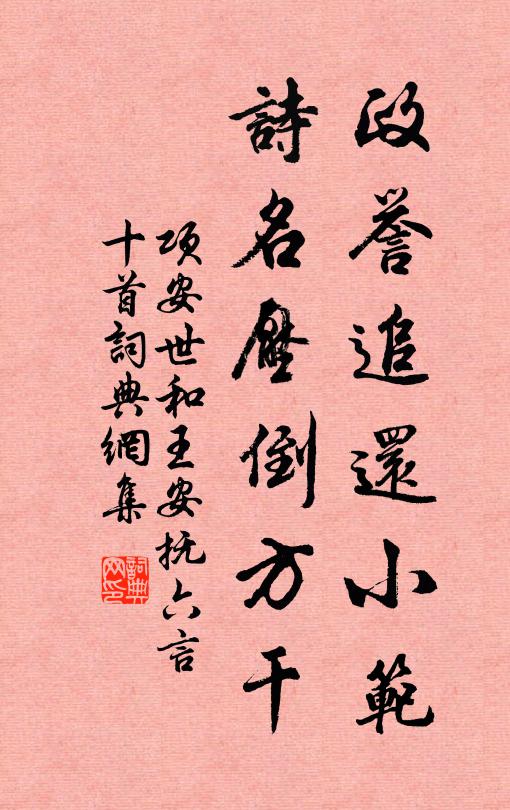 政誉追還小範
詩名壓倒方干
項安世和王安抚六言
十首詞典網集
詞典
网印